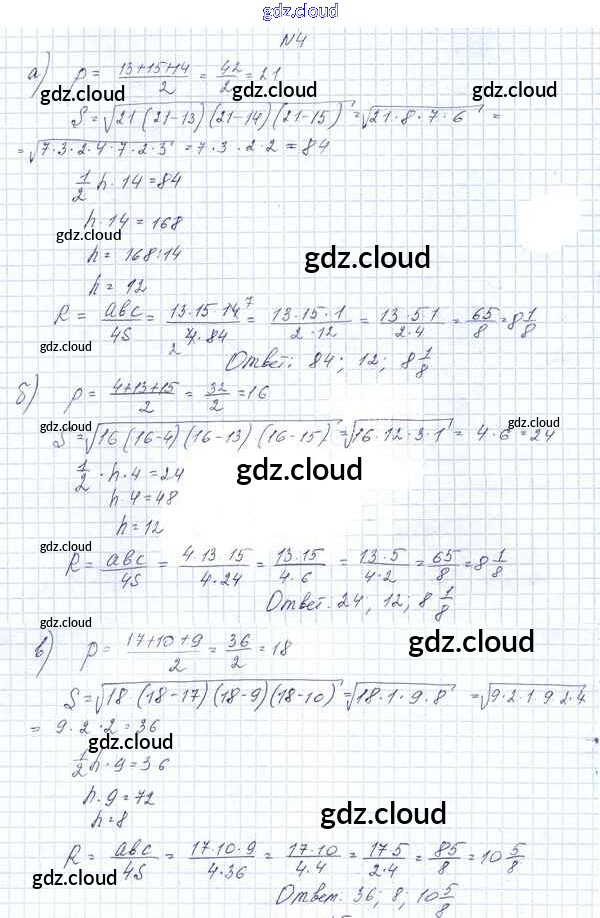 gdz.cloud
N4
а) p = (13+15+14)/2 = 42/2 = 21
gdz.cloud gdz.cloud
S = √(21 (21-13) (21-14) (21-15)) = √(21·8·7·6) =
= √(7·3·2·4·7·2·3) = 7·3·2·2 = 84
1/2 h·14 = 84
h·14 = 168
gdz.cloud
h = 168:14
gdz.cloud
h = 12
R = abc/4S = (13·15·14 7)/(4·84 2) = (13·15·1)/(2·12) = (13·5·1)/(2·4) = 65/8 = 8 1/8
gdz.cloud
Ответ: 84; 12; 8 1/8
б) p = (4+13+15)/2 = 32/2 = 16
gdz.cloud gdz.cloud
S = √(16 (16-4) (16-13) (16-15)) = √(16·12·3·1) = 4·6 = 24
1/2 · h·4 = 24
gdz.cloud
h·4 = 48
h = 12
gdz.cloud
R = abc/4S = (4·13·15)/(4·24) = (13·15)/(4·6) = (13·5)/(4·2) = 65/8 = 8 1/8
Ответ: 24; 12; 8 1/8
gdz.cloud
в) p = (17+10+9)/2 = 36/2 = 18
gdz.cloud
S = √(18·(18-17) (18-9) (18-10)) = √(18·1·9·8) = √(9·2·1·9·2·4)
= 9·2·2 = 36
gdz.cloud
1/2 h·9 = 36
h·9 = 72
gdz.cloud
h = 8
R = abc/4S = (17·10·9)/(4·36) = (17·10)/(4·4) = (17·5)/(2·4) = 85/8 = 10 5/8
gdz.cloud
Ответ: 36; 8; 10 5/8